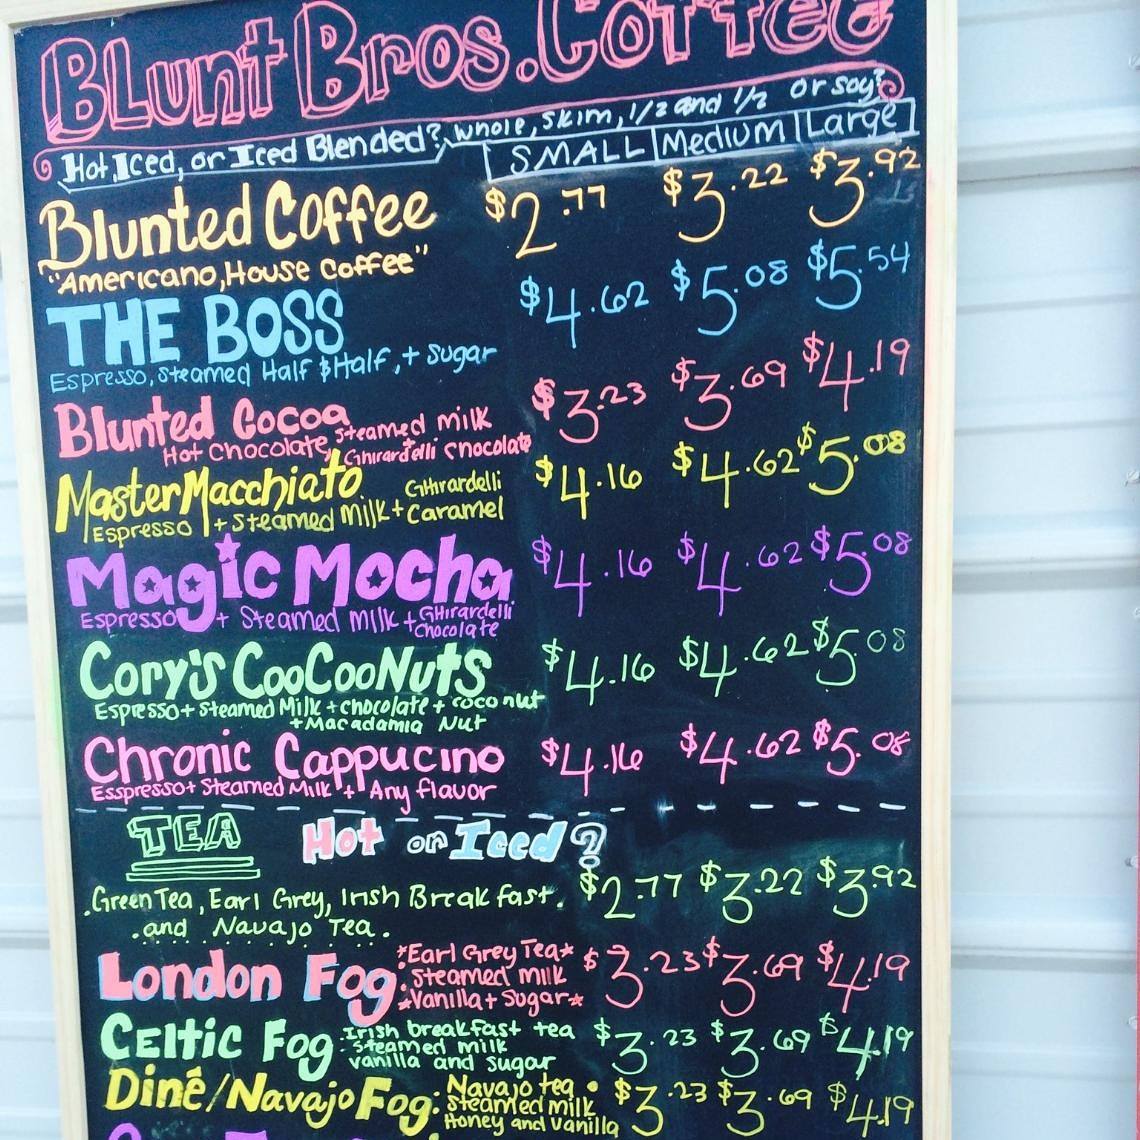 Blunt Bros. Coffee
Hot, Iced, or Iced Blended? whole, skim, 1/2 and 1/2 or soy?
SMALL Medium Large
Blunted Coffee $2.77 $3.22 $3.92
"Americano, House Coffee"
THE BOSS $4.62 $5.08 $5.54
Espresso, Steamed Half $ Half, + Sugar
Blunted Cocoa $3.23 $3.69 $4.19
Hot Chocolate, steamed milk + Ghirardelli Chocolate
Master Macchiato $4.16 $4.62 $5.08
Espresso + Steamed Milk + GHirardelli Caramel
Magic Mocha $4.16 $4.62 $5.08
Espresso + Steamed Milk + GHirardelli
Chocolate
Cory's CooCooNuts $4.16 $4.62 $5.08
Espresso + Steamed Milk + chocolate + coconut
+ Macadamia Nut
Chronic Cappucino $4.16 $4.62 $5.08
Esspresso + Steamed Milk + Any flavor
TEA Hot or Iced?
.Green Tea, Earl Grey, Irish Breakfast. $2.77 $3.22 $3.92
.and Navajo Tea.
London Fog: *Earl Grey Tea* $3.23 $3.69 $4.19
steamed milk
*Vanilla + Sugar*
Celtic Fog: Irish breakfast tea $3.23 $3.69 $4.19
steamed milk
vanilla and sugar
Dinê/Navajo Fog: Navajo tea $3.23 $3.69 $4.19
steamed milk
Honey and Vanilla